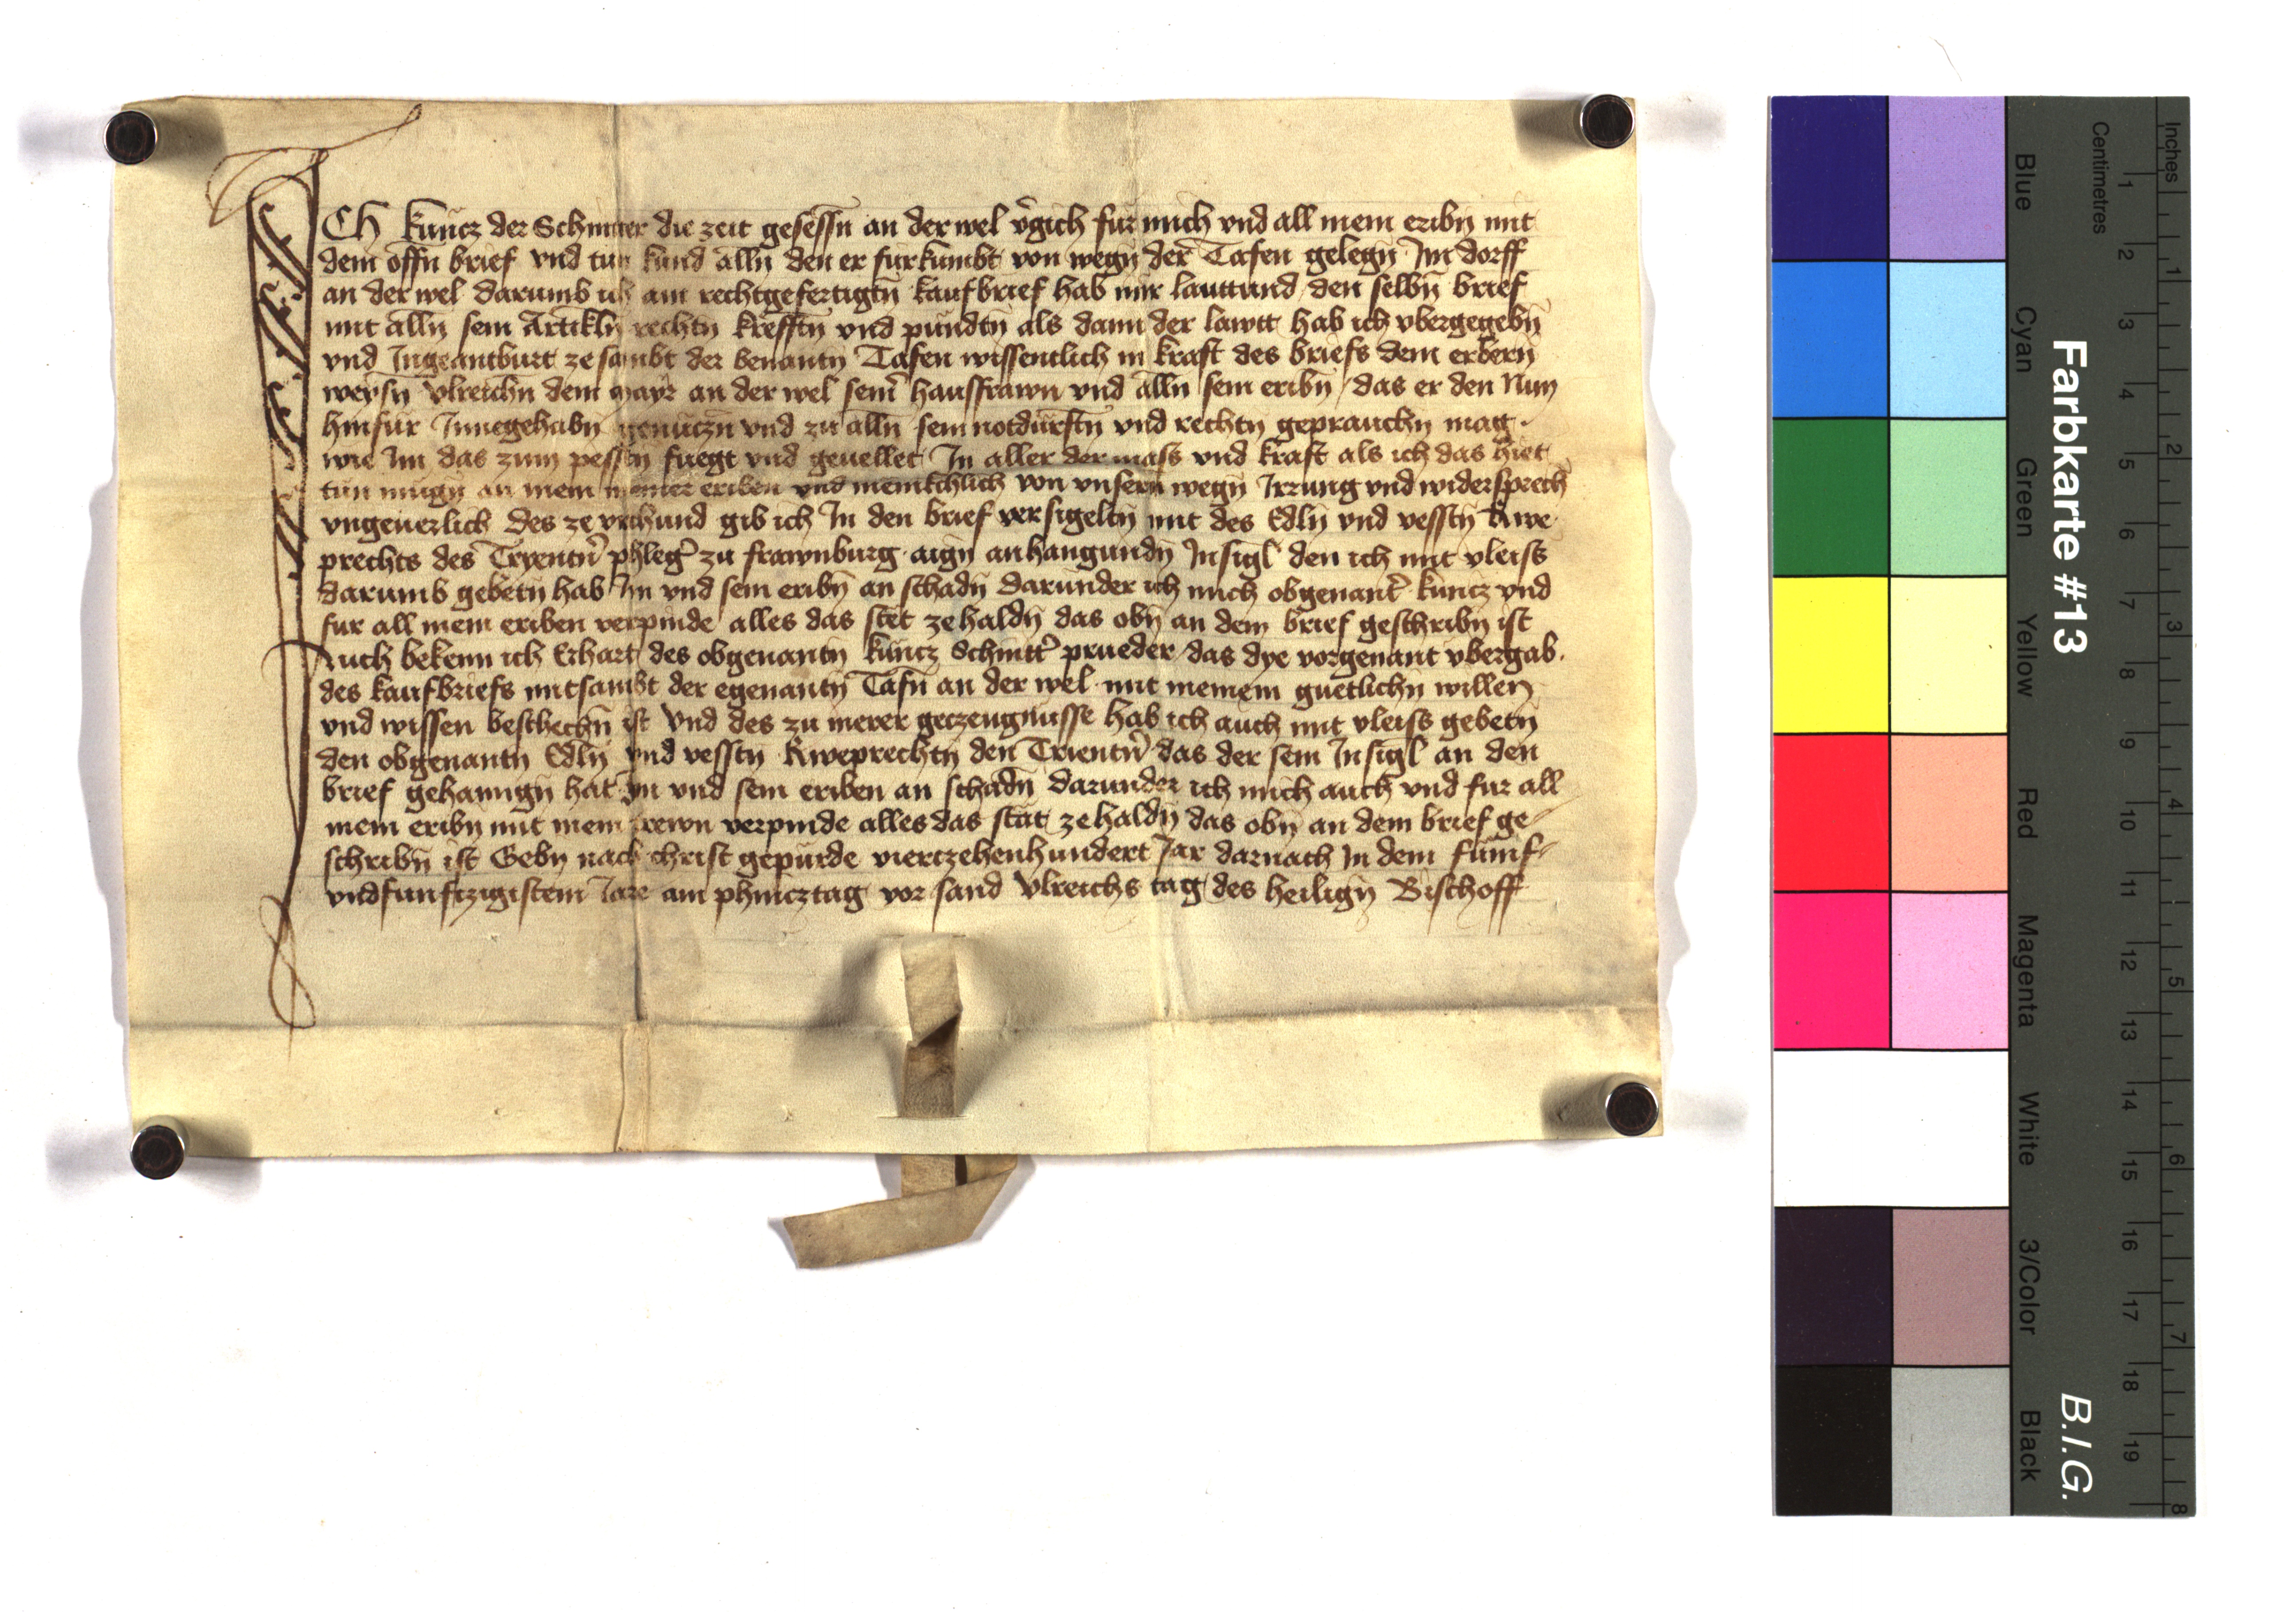 ICH Kuncz der Schmitter die zeit gesessn an der wel vgich fur mich vnd all mein eribn mit
dem offn brief vnd tun kund alln den er furkumbt von wegn der Tafen gelegn Im dorff
an der wel darumb ich ain rechtgefertigtn kaufbrief hab mir lauttund den selbn brief
mit alln sein Artikln rechtn krefftn vnd pundtn als dann der lawtt hab ich vbergegebn
vnd Ingeantburt ze sambt der benantn Tafen wissentlich in kraft des briefs dem erbern
weysn vlreichn dem mayr an der wel seinr hausfrawn vnd alln sein eribn das er den Nun
hinfur Innegehabn genuczn vnd zu alln sein notdurftn vnd rechtn geprauchn mag
wie Im das zum pesstn fuegt vnd geuellet In aller der mass vnd kraft als ich das hiet
tun mugn an mein meiner eriben vnd menikchlich von vnsern wegn Irrung vnd widersprech
vngeuerlich Des ze vrchund gib ich In den brief versigeltn mit des Edln vnd vesstn Rwe
prechts des Tryentnr phlegr zu frawnburg aign anhangundn Insigl den ich mit vleiss
darumb gebetn hab Im vnd sein eribn an schadn darunder ich mich obgenantr kuncz vnd
fur all mein eriben verpinde alles das stet ze haldn das obn an dem brief geschribn ist
Auch bekenn ich Erhart des obgenantn kuncz Schmittr prueder das dye vorgenant vbergab
des kaufbriefs mitsambt der egenantn Tafn an der wel mit meinem guetlichn willen
vnd wissen beschechn ist Vnd des zu merer geczeugnusse hab ich auch mit vleiss gebetn
den obgenantn Edln vnd vesstn Rweprechtn den Trientnr das der sein Insigl an den
brief gehanngn hat Im vnd sein eriben an schadn darunder ich mich auch vnd fur all
mein eribn mit mein trewn verpinde alles das stat ze haldn das obn an dem brief ge
schribn ist Gebn nach christ gepurde viertzehenhundert Jar darnach In dem funf
vndfunftzigistem Jare am phincztag vor sand Vlreichs tag des heilign Bischoff
Farbkarte #13
B.I.G.
Inches
Centimetres
1 2 3 4 5 6 7 8 9 10 11 12 13 14 15 16 17 18 19
1 2 3 4 5 6 7 8
Blue
Cyan
Green
Yellow
Red
Magenta
White
3/Color
Black